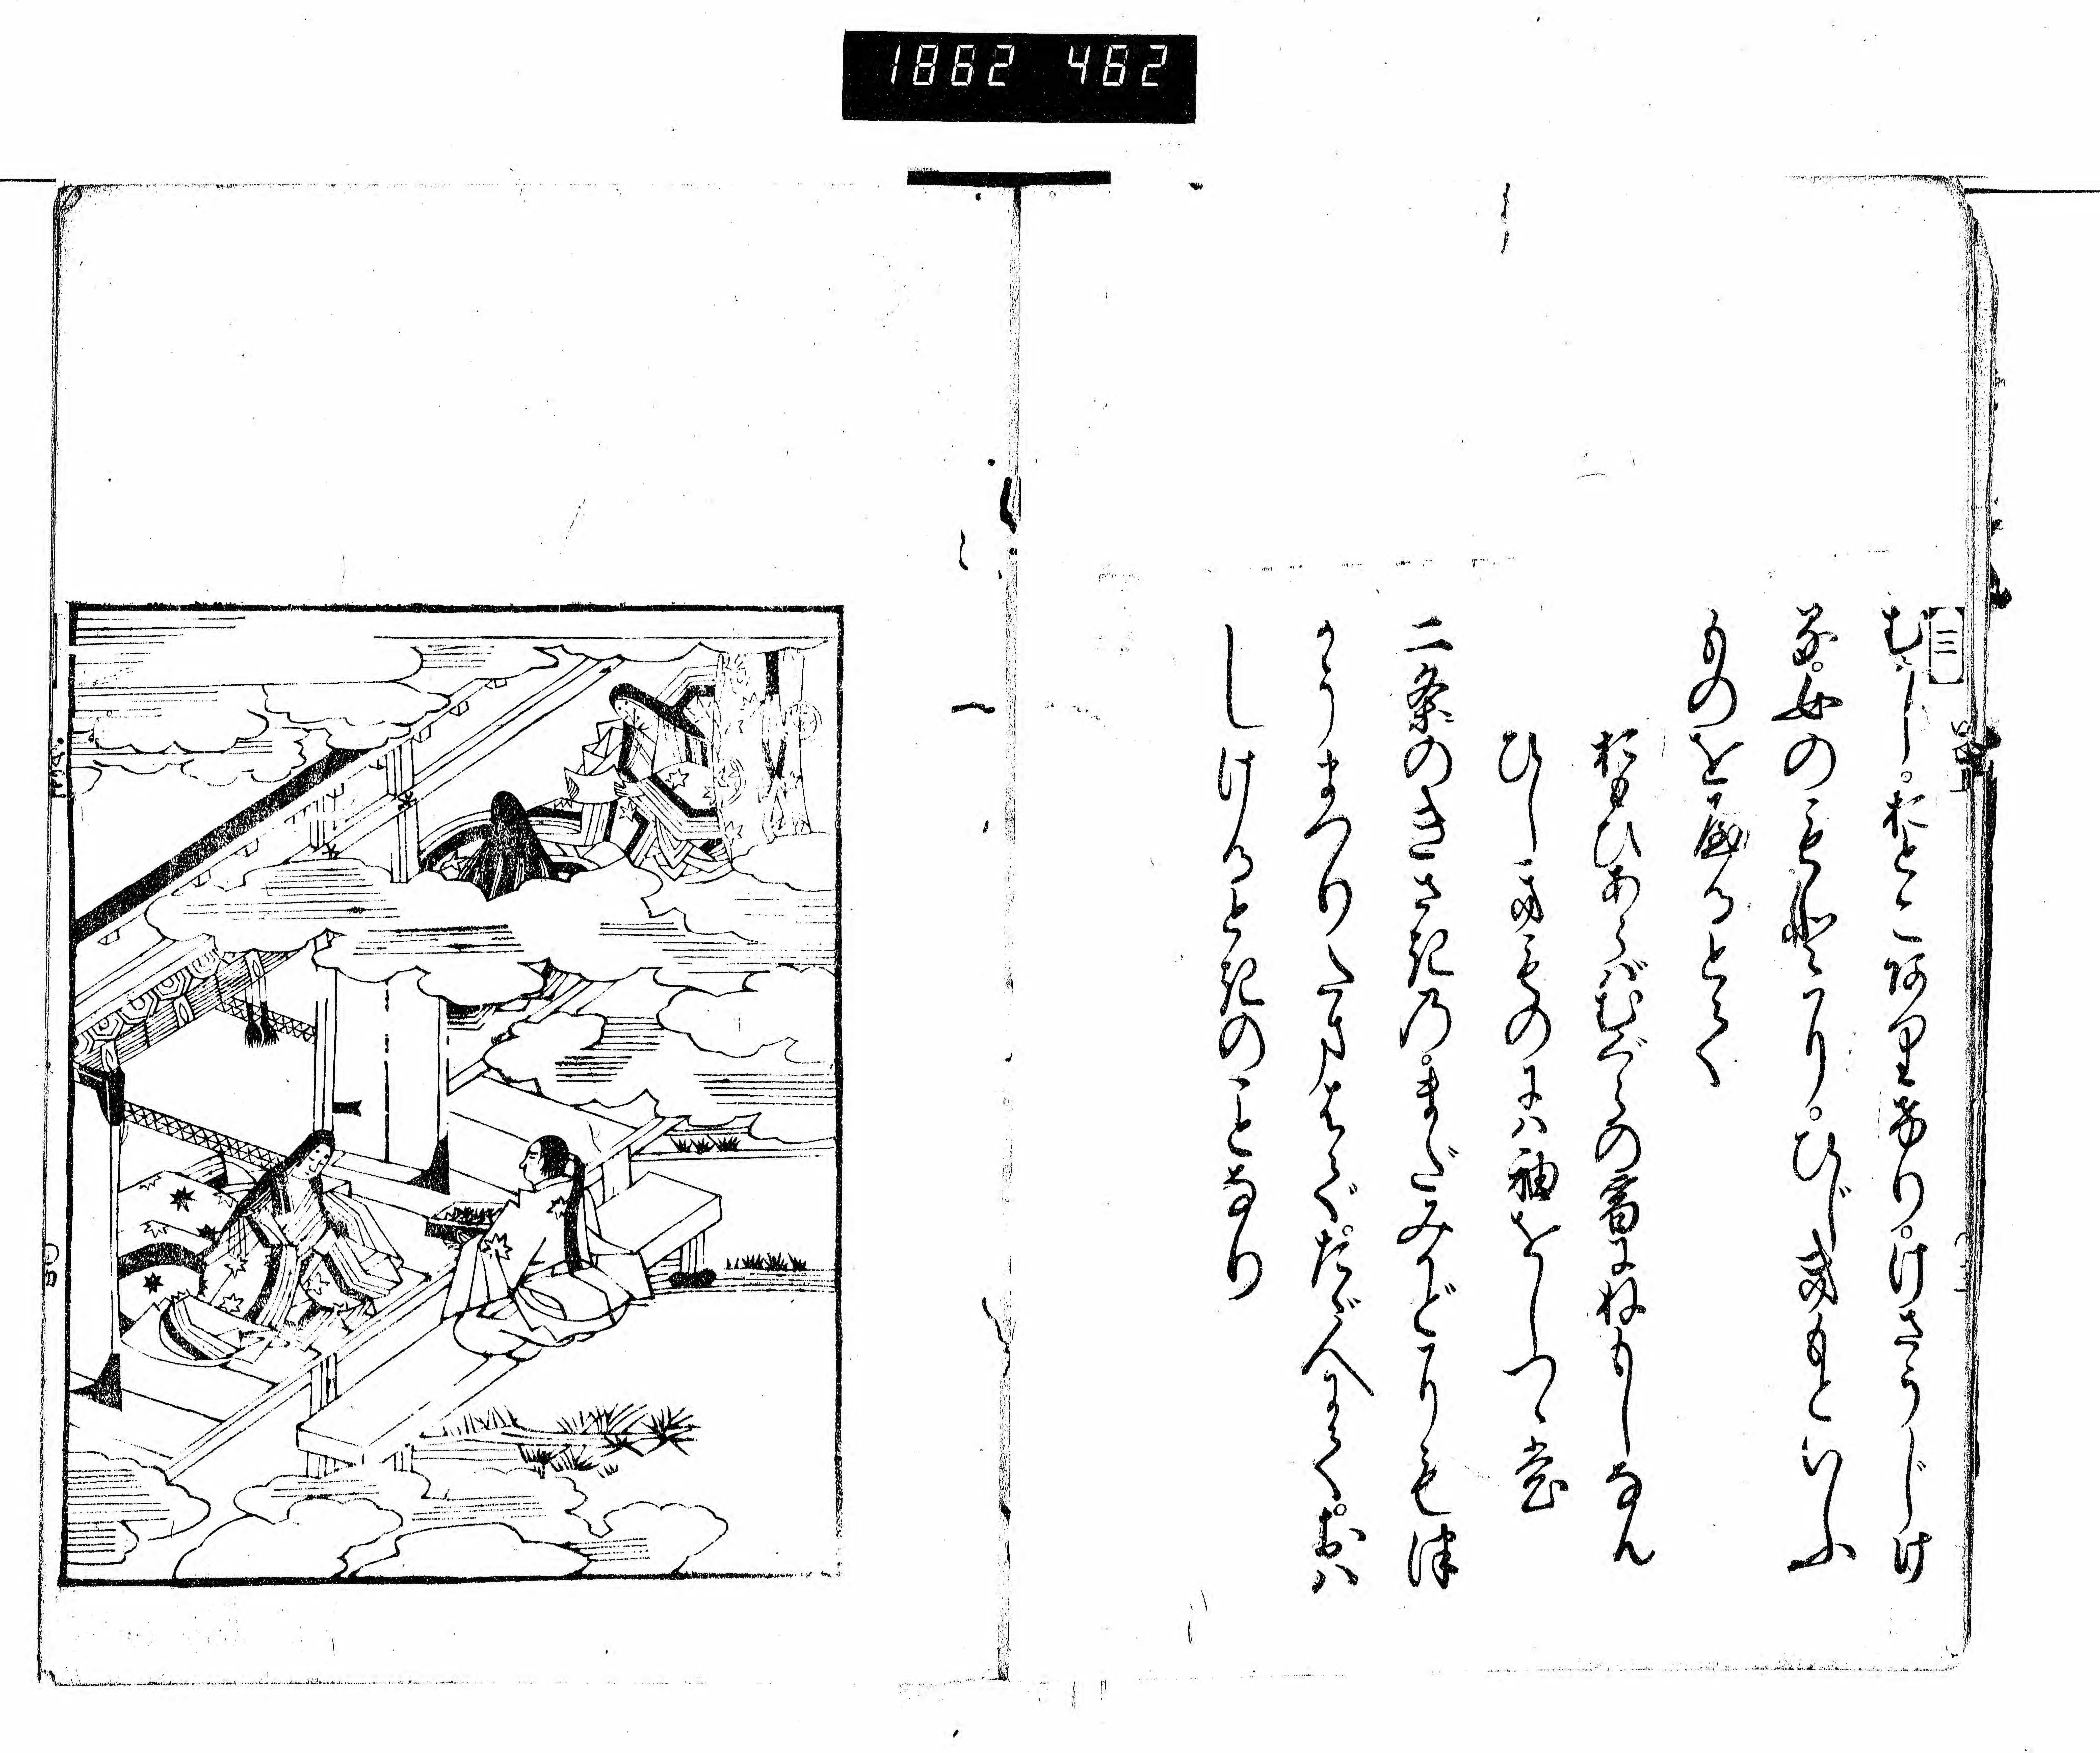 1862 462
三
むかし。おとこ有けり。けさうじけ
る。女のもとに。ひじきもといふ
ものをやるとて
おもひあらばむぐらの宿にねもしなん
ひしきものには袖をしつゝも
二条のきさきの。まだみかどにもつ
かうまつりたまはで。たゞ人にて。おは
しけるときのことなり